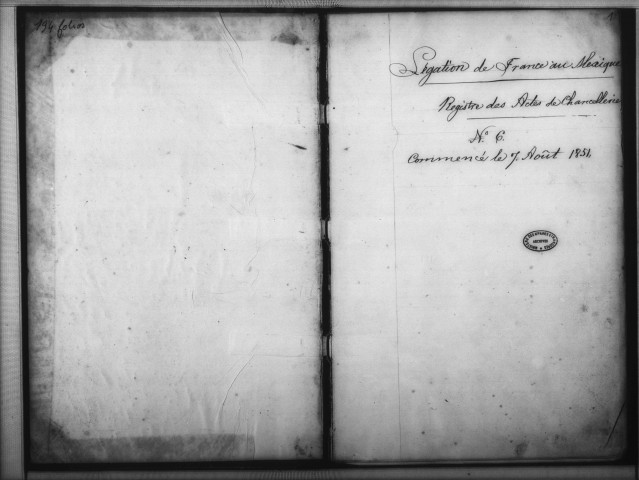 134 folios
1
Légation de France au Mexique
Registre des Actes de Chancellerie
N.º 6.
Commencé le 7. Août 1851.
ARCHIVES